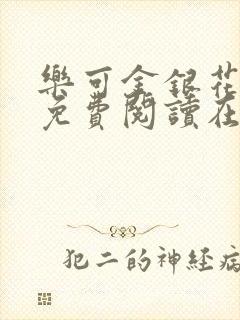 樂可金銀花
免費閱讀在
犯二的神経病